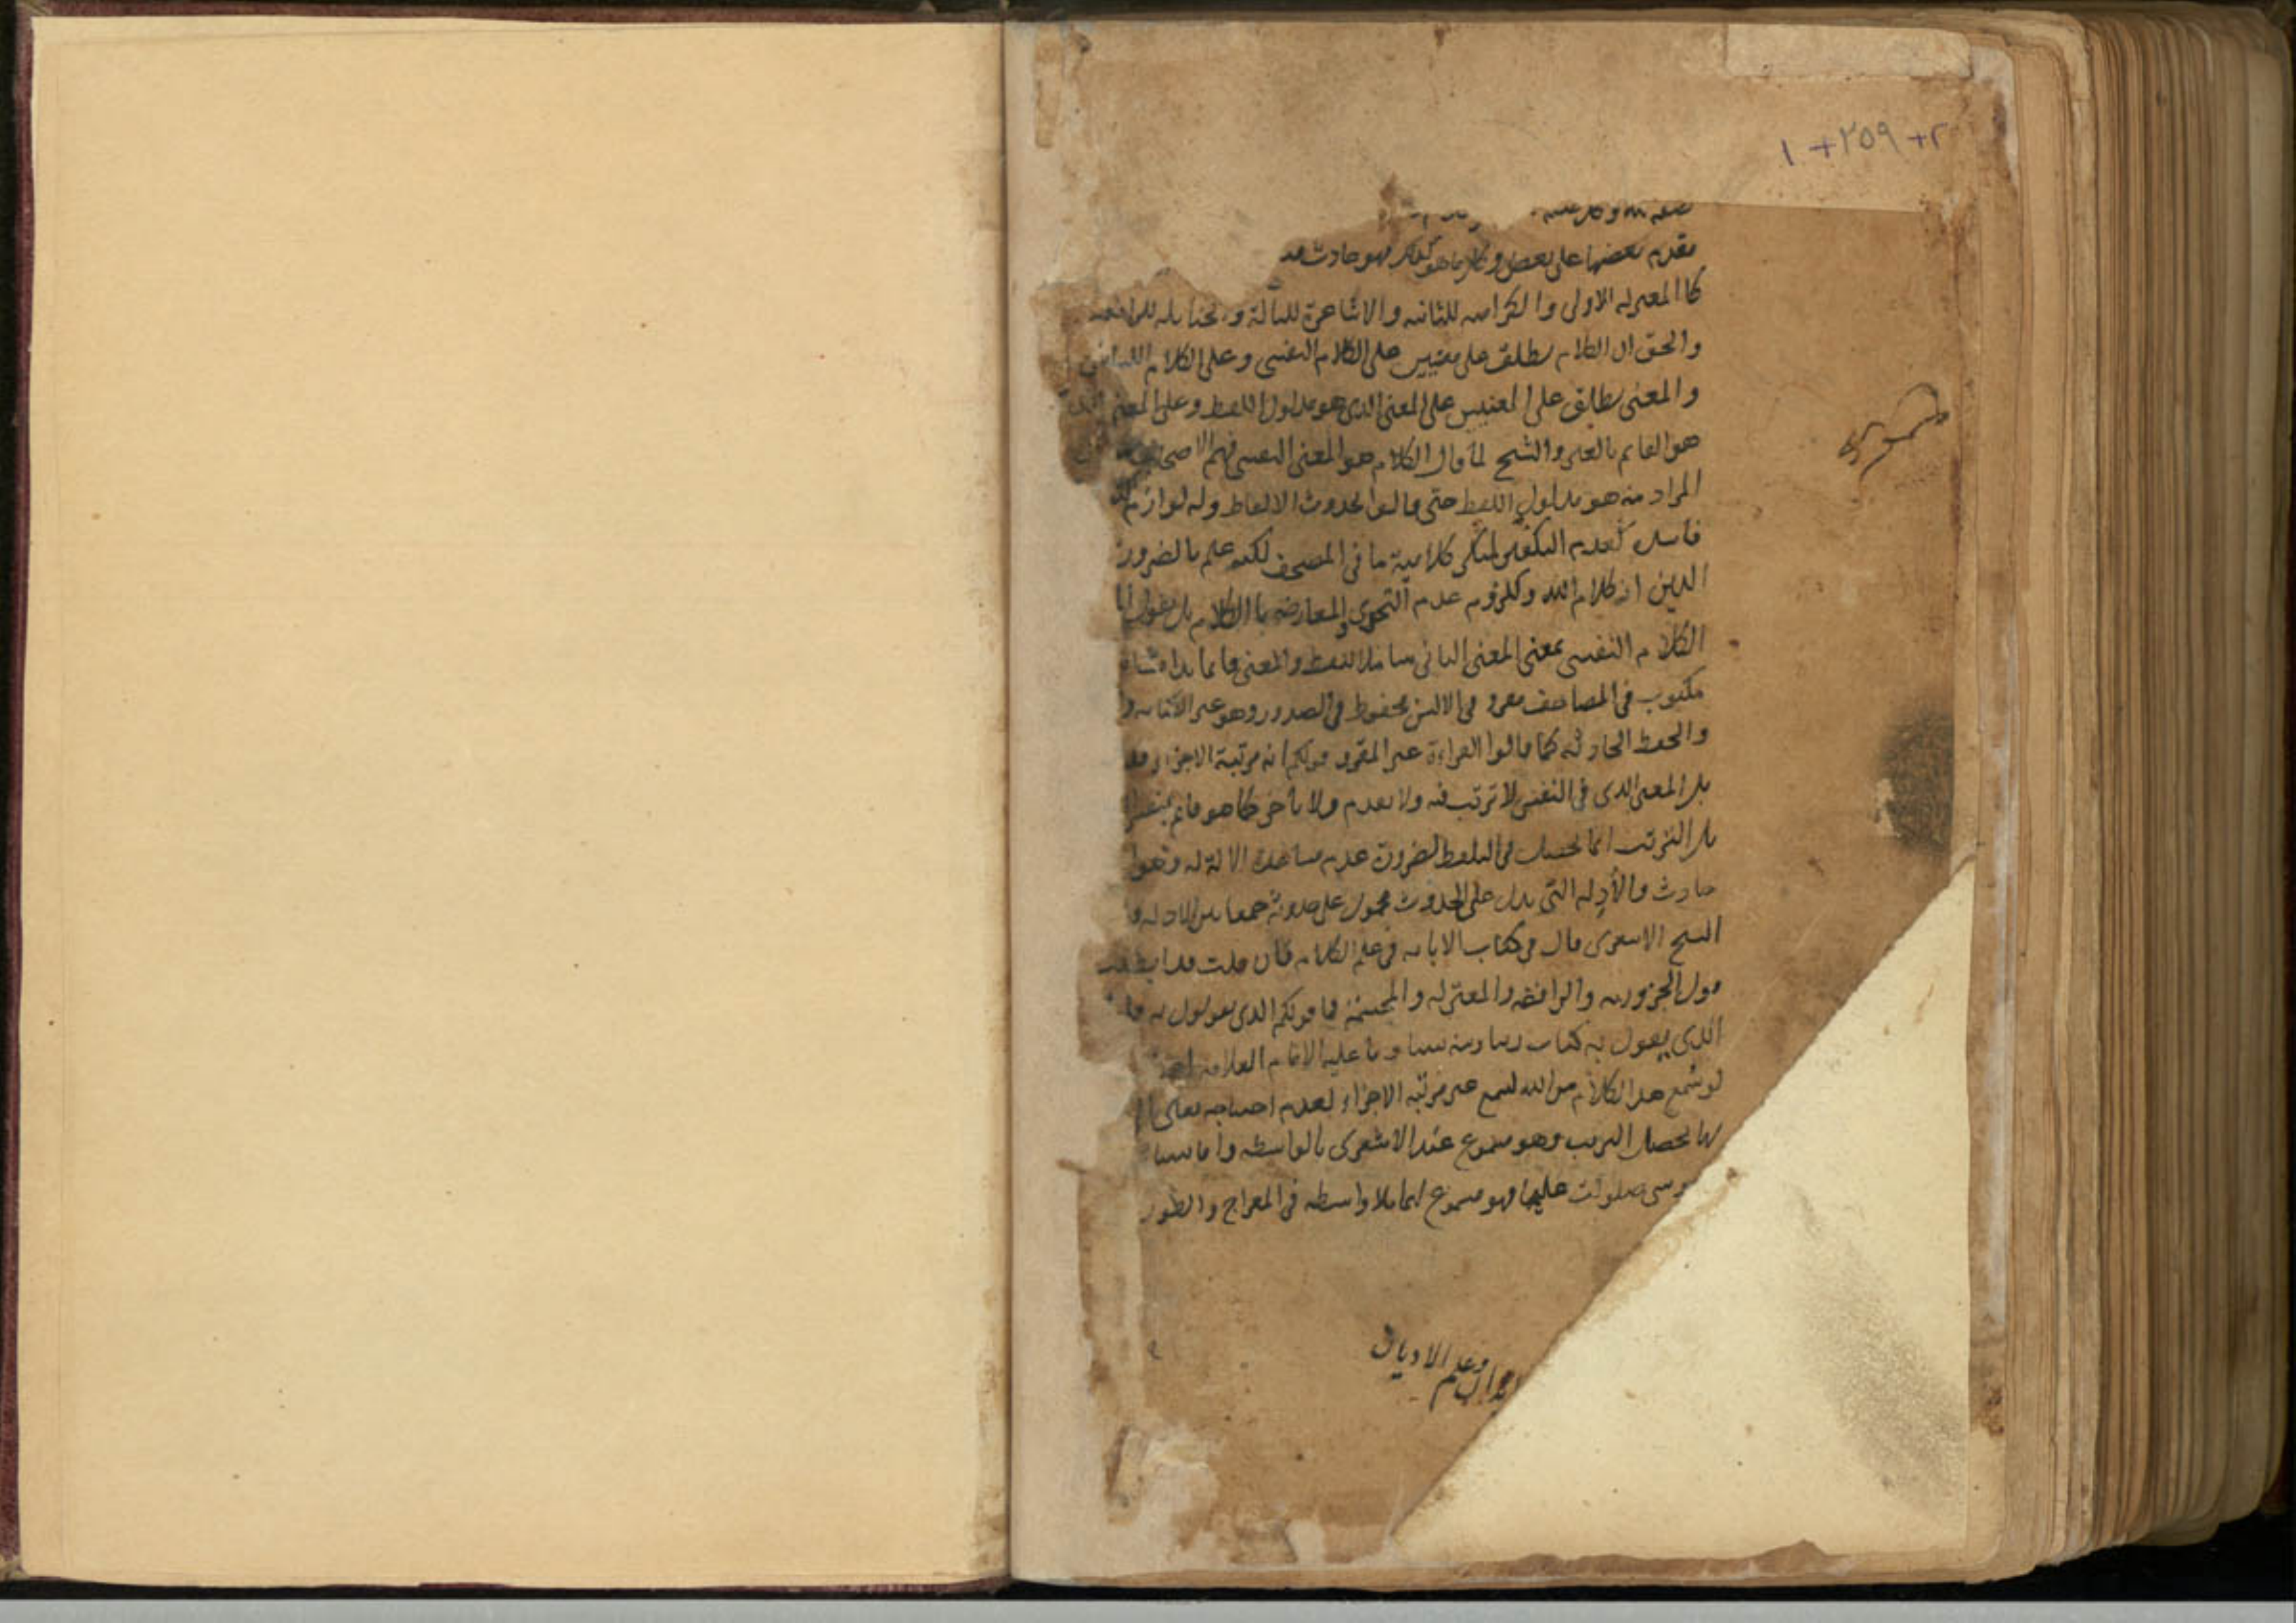 ١+٢٥٩+٢
مقدم بعضها على بعض وكل ما هو كذلك فهو حادث
كالمعتزله الاولى والكراميه للثانيه والاشاعرة للثالثة و لحنابله للرابعه
والحق ان الكلام يطلق على معنيين على الكلام النفسى وعلى الكلام اللسانى
والمعنى يطلق على المعنيين على المعنى الذى هو مدلول اللفظ وعلى المعنى الذى
هو القايم بالغير والشيخ لما قال الكلام هو المعنى النفسى فهم الاصحاب
المراد منه هو مدلول اللفظ حتى قالوا بحدوث الالفاظ وله لوازم
فاسده كعدم التكفير لمنكر كلامية ما فى المصحف لكنه علم بالضرورة
الدين انه كلام الله وكلزوم عدم التحدى والمعارضه بالكلام بل نقول
الكلام النفسى بمعنى المعنى الثانى شاملا للفظ والمعنى قايما بذاته
مكتوب فى المصاحف مقرو فى الالسن محفوظ فى الصدور وهو غير الكتابه
والحفظ الحادثه كما قالوا القراءة غير المقرو قولكم انه مرتبة الاجزاء
بل المعنى الذى فى النفس لا ترتب فيه ولا تقدم ولا تأخر كما هو قايم بنفس
بل الترتب انما يحصل فى التلفظ لضرورة عدم مساعدة الالة له وهو
حادث والأدله التى تدل على الحدوث محمول على حدوثه جمعا بين الادله
الشيخ الاشعرى قال فى كتاب الابانه فى علم الكلام فان قلت قد
قول والرافضه والمعتزله والمجسمة فما قولكم الذى تقولون به
الذى نقول به كتاب ربنا وسنه نبينا وما عليه الامام العلامه احمد
لو سمع هذا الكلام من الله لسمع غير مرتبه الاجزاء لعدم احتياجه تعالى
بها يحصل الترتب وهو مسموع عند الاشعرى بالواسطه واما نبينا
وسى صلوات عليهما فهو مسموع لهما بلا واسطه فى المعراج والطور
وعلم الاديان